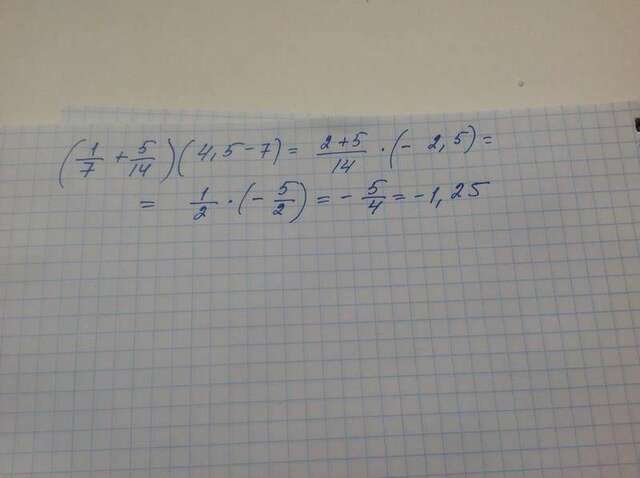 (1/7 + 5/14)(4,5 - 7) = (2+5)/14 · (- 2,5) =
= 1/2 · (- 5/2) = - 5/4 = -1,25